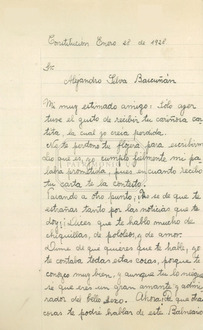 Constitucion Enero 28 de 1928.
Sr.
Alejandro Silva Bascuñán
Mi muy estimado amigo: Sólo ayer
tuve el gusto de recibir tu cariñosa car-
tita, la cual yo creía perdida.
No te perdono tu flojera para escribirme
dio que es, yo cumplo fielmente mi pa-
labra prometida, pues en cuanto recibo
tu carta te la contesto.
Pasando a otro punto, de que te
extrañas tanto por las noticias que te
doy; Dices que te hablo mucho de
chiquillas, de pololeos, de amor.
Dime de que quieres que te hable, yo
te contaba todas estas cosas, porque te
conozco muy bien, y aunque tu lo niegues
se que eres un gran amante y admi-
rador del bello sexo. Ahora que otras
cosas te podré hablar de este Balneario